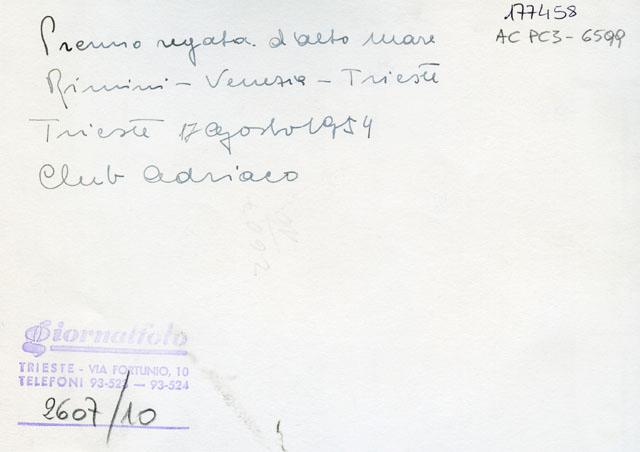 177458
AC PC3-6599
Premio regata d'alto mare
Rimini - Venezia - Trieste
Trieste 17 agosto 1954
Club Adriaco
Giornalfoto
TRIESTE - VIA FORTUNIO, 10
TELEFONI 93-523 - 93-524
2607/10